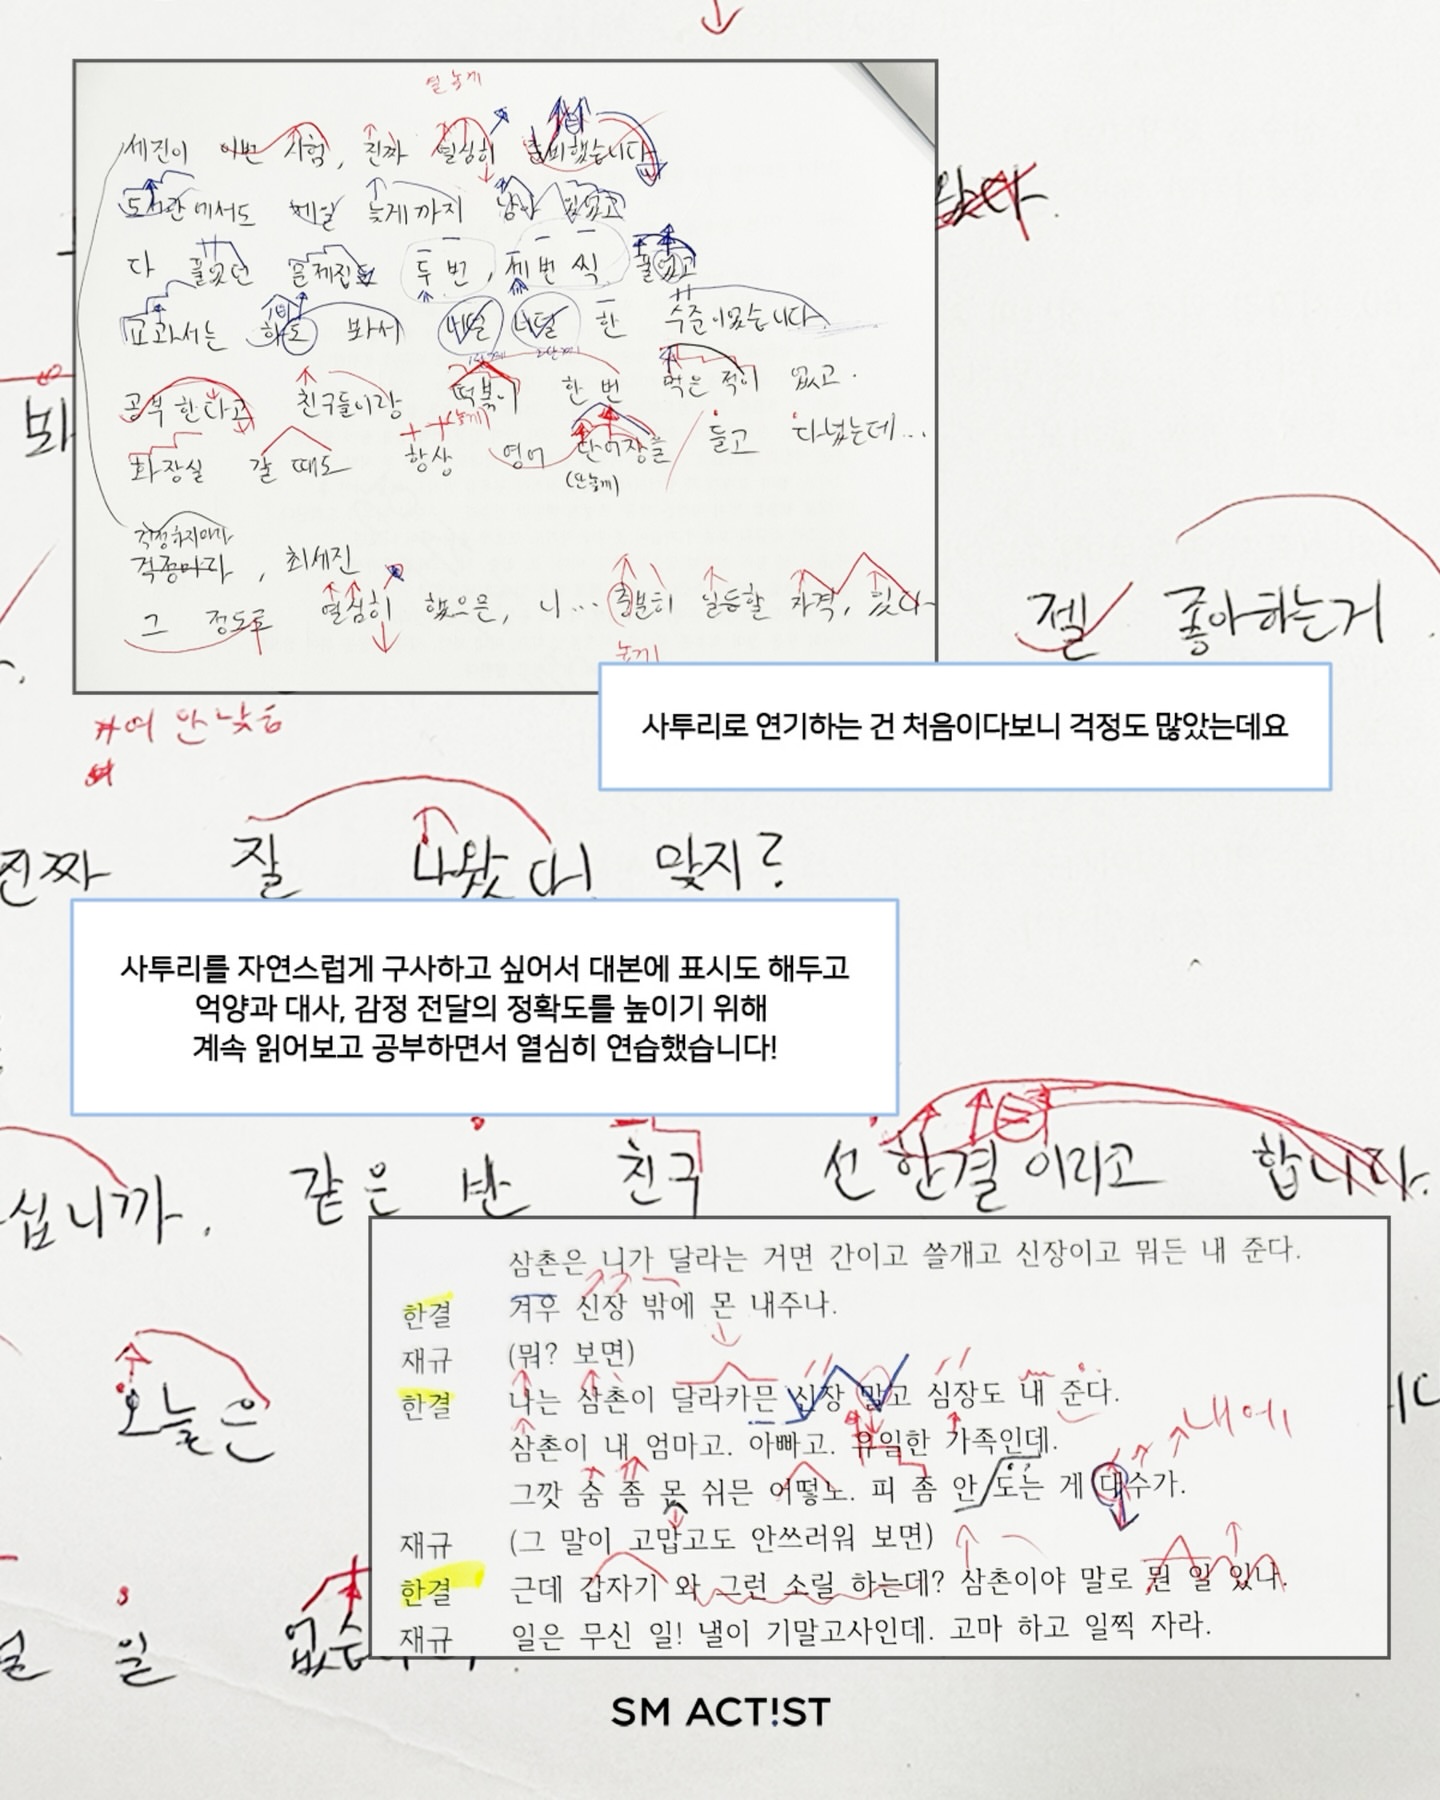 열 높게
세진이 이번 시험, 진짜 열심히 준비했습니다
도서관에서도 제일 늦게까지 남아
다 풀었던 문제집도 두 번, 세 번 씩 풀었고
교과서는 하도 봐서 너덜 너덜 한 수준이었습니다
1단계 2단계
공부한다고 친구들이랑 떡볶이 한 번 먹은 적이 없고.
(높게)
화장실 갈 때도 항상 영어 단어장을 들고 다녔는데...
(단높게)
걱정하지마라
걱정마라, 최세진
그 정도로 열심히 했으믄, 니... 충분히 일등할 자격, 있다
높게
봐
젤 좋아하는거
사투리로 연기하는 건 처음이다보니 걱정도 많았는데요
진짜 잘 나왔다! 맞지?
사투리를 자연스럽게 구사하고 싶어서 대본에 표시도 해두고
억양과 대사, 감정 전달의 정확도를 높이기 위해
계속 읽어보고 공부하면서 열심히 연습했습니다!
십니까. 같은 반 친구 선한결이라고 합니다.
삼촌은 니가 달라는 거면 간이고 쓸개고 신장이고 뭐든 내 준다.
한결 겨우 신장 밖에 몬 내주나.
재규 (뭐? 보면)
한결 나는 삼촌이 달라카믄 신장 말고 심장도 내 준다.
내에
삼촌이 내 엄마고. 아빠고. 유일한 가족인데.
그깟 숨 좀 몬 쉬믄 어떻노. 피 좀 안 도는 게 대수가.
재규 (그 말이 고맙고도 안쓰러워 보면)
한결 근데 갑자기 와 그런 소릴 하는데? 삼촌이야 말로 뭔 일 있나.
재규 일은 무신 일! 낼이 기말고사인데. 고마 하고 일찍 자라.
오늘은
일
SM ACT!ST